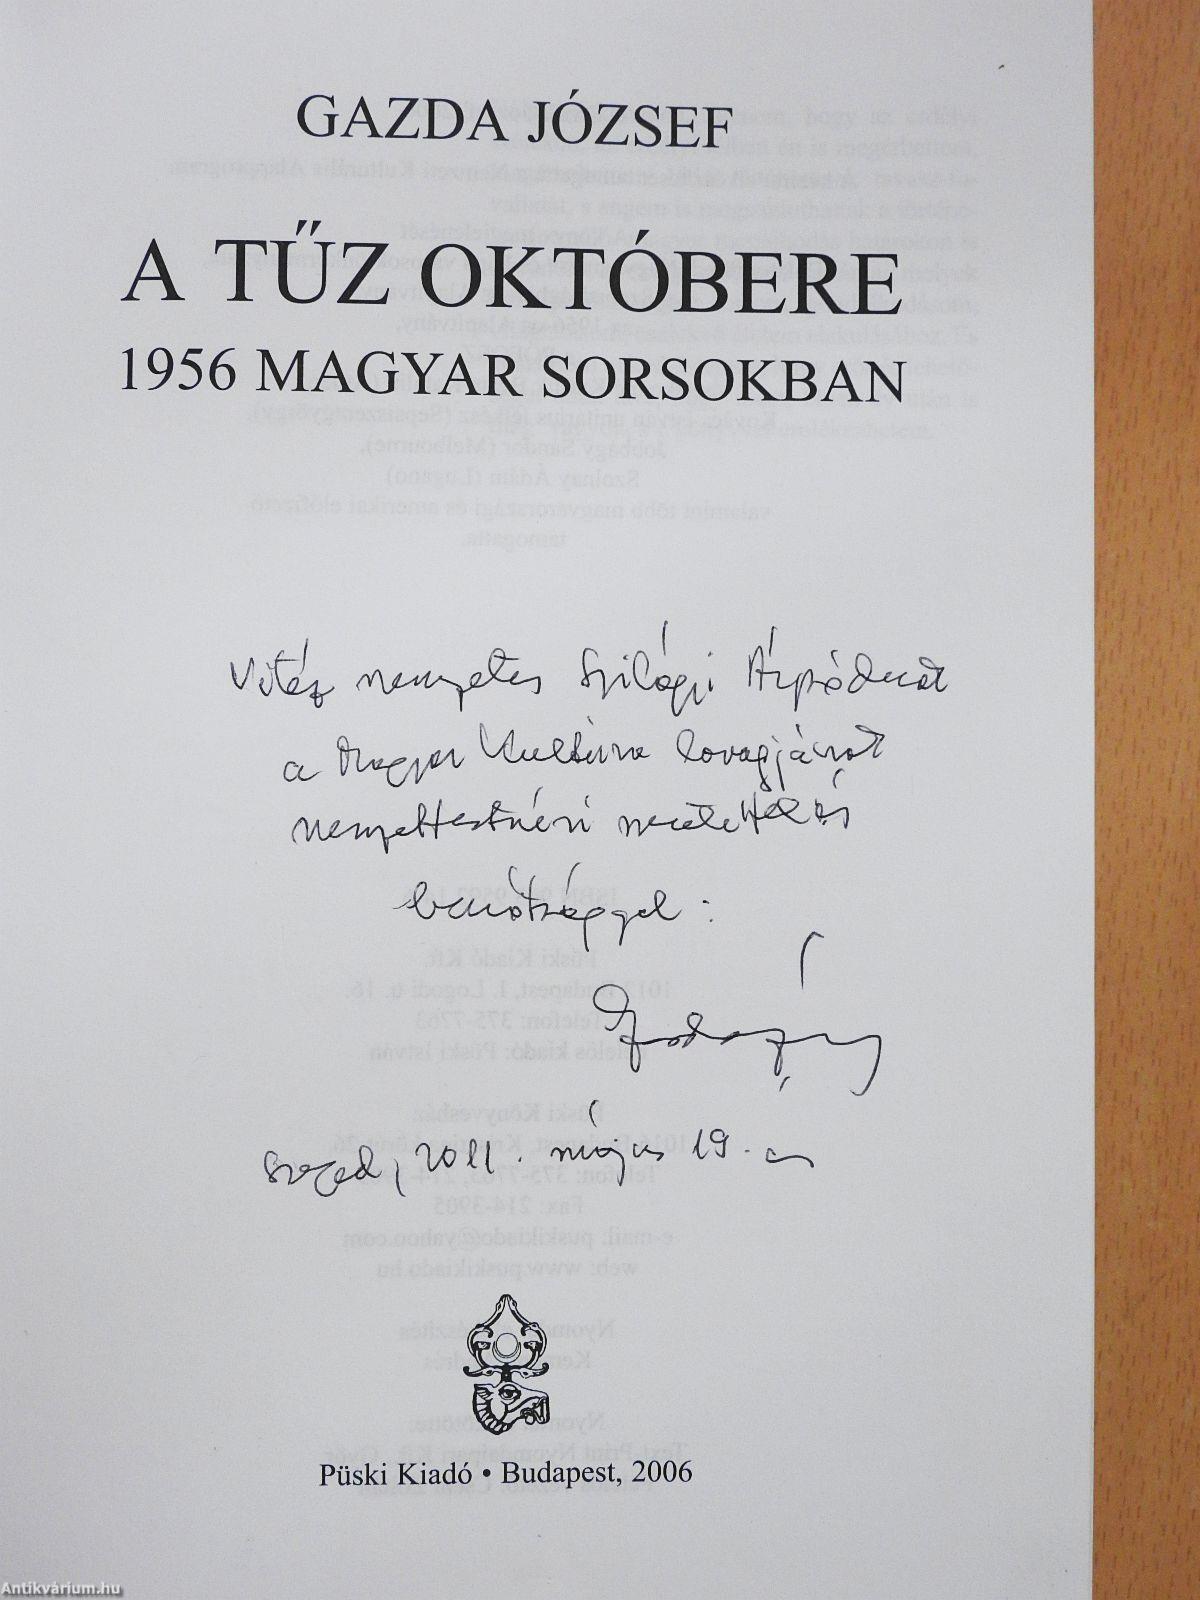 GAZDA JÓZSEF
A TŰZ OKTÓBERE
1956 MAGYAR SORSOKBAN
Vitéz nemzetes Szilágyi Árpádnak
a Magyar Kultúra lovagjának
nemzettestvéri szeretettel és
barátsággal:
Gazda József
Szeged, 2011. május 19.-én
Püski Kiadó • Budapest, 2006
Antikvárium.hu